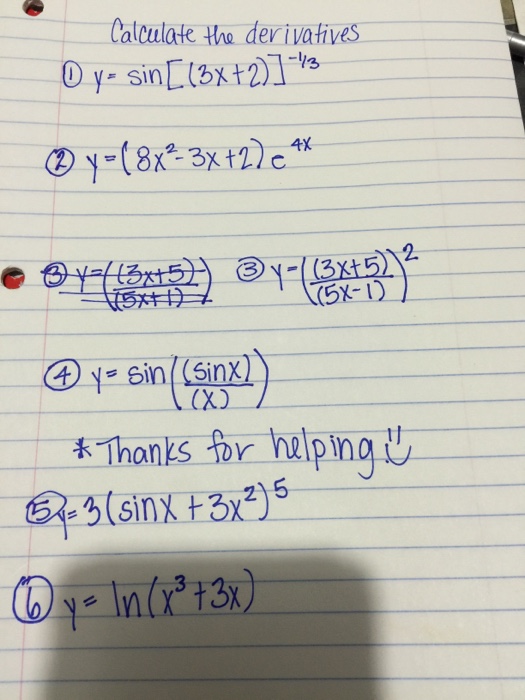 Calculate the derivatives
① y = sin[(3x+2)]^-1/3
② y = (8x²-3x+2)e^4x
③ y = ((3x+5)/(5x+1)) ③ y = ((3x+5)/(5x-1))²
④ y = sin((sinx)/(x))
* Thanks for helping!
⑤ y = 3(sinx + 3x²)^5
⑥ y = ln(x³+3x)